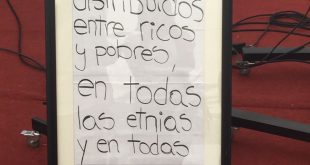 distribuidos
entre ricos
y pobres,
en todas
las etnias
y en todas